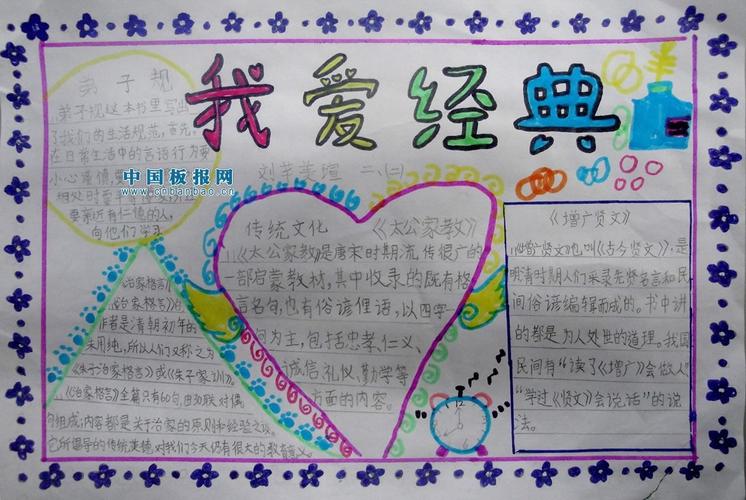 我爱经典
弟子规
弟子规这本书里写出
了我们的生活规范,首先,
在日常生活中的言语行为要
小心谨慎,
要亲近有仁德的人,
向他们学习
中国板报网
www.cnbanbao.cn
二、(二)
传统文化 《太公家教》
《太公家教》是唐宋时期流传很广的
一部启蒙教材,其中收录的既有格
言名句,也有俗谚俚语,以四字
为主,包括忠孝、仁义、
诚信、礼仪、勤学等
方面的内容。
《增广贤文》
《增广贤文》也叫《古今贤文》,是
明清时期人们采录先贤名言和民
间俗谚编辑而成的。书中讲
的都是为人处世的道理。我国
民间有“读了《增广》会做人”
“学过《贤文》会说话”的说
法。
《治家格言》
《治家格言》的
作者是清朝初年的
朱用纯,所以人们又称之为
《朱子治家格言》或《朱子家训》。
《治家格言》全篇只有60句,由如联对偶
句组成;内容都是关于治家的原则和经验之谈。
它所倡导的传统美德对我们今天仍有很大的教育意义。
12